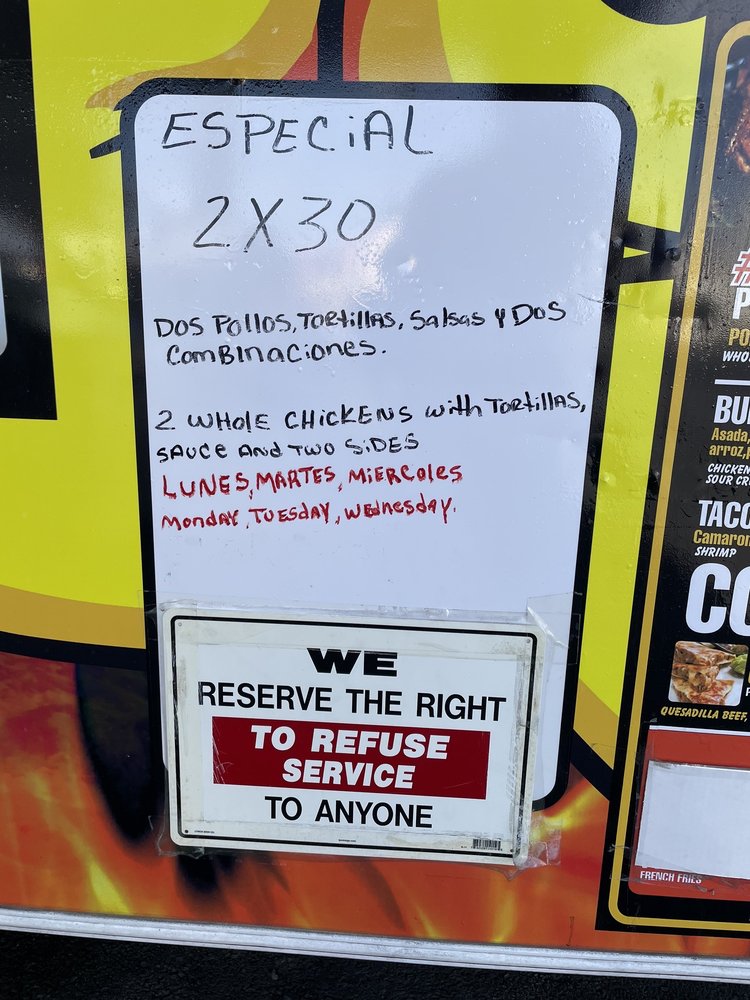 ESPECiAL
2X30
DOS POLLOS, TORtiLLAS, SALSAS Y DOS
COMBINACIONES.
2 WHOLE CHICKENS with TORTILLAS,
SAUCE AND TWO SiDES
LUNES, MARTES, MiERCOLES
MONDAY, TUESDAY, WEDNESDAY.
WE
RESERVE THE RIGHT
TO REFUSE
SERVICE
TO ANYONE
WHO
BU
Asada,
arroz,
CHICKEN
SOUR CR
TACO
Camaron
SHRIMP
CO
QUESADILLA BEEF,
FRENCH FRIES